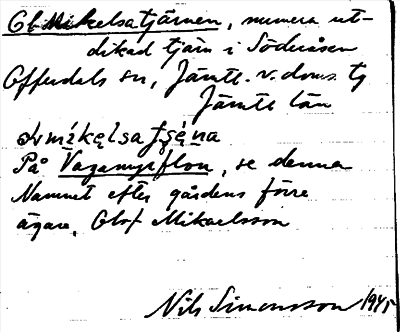 Ol-Mikelsatjärnen, numera ut-
dikad tjärn i Söderåsen
Offerdals sn, Jämtl. v. doms. tg
Jämtl län
På Vagamyrflon, se denna
Namnet efter gårdens förre
ägare, Olof Mikaelsson
Nils Simonsson 1945